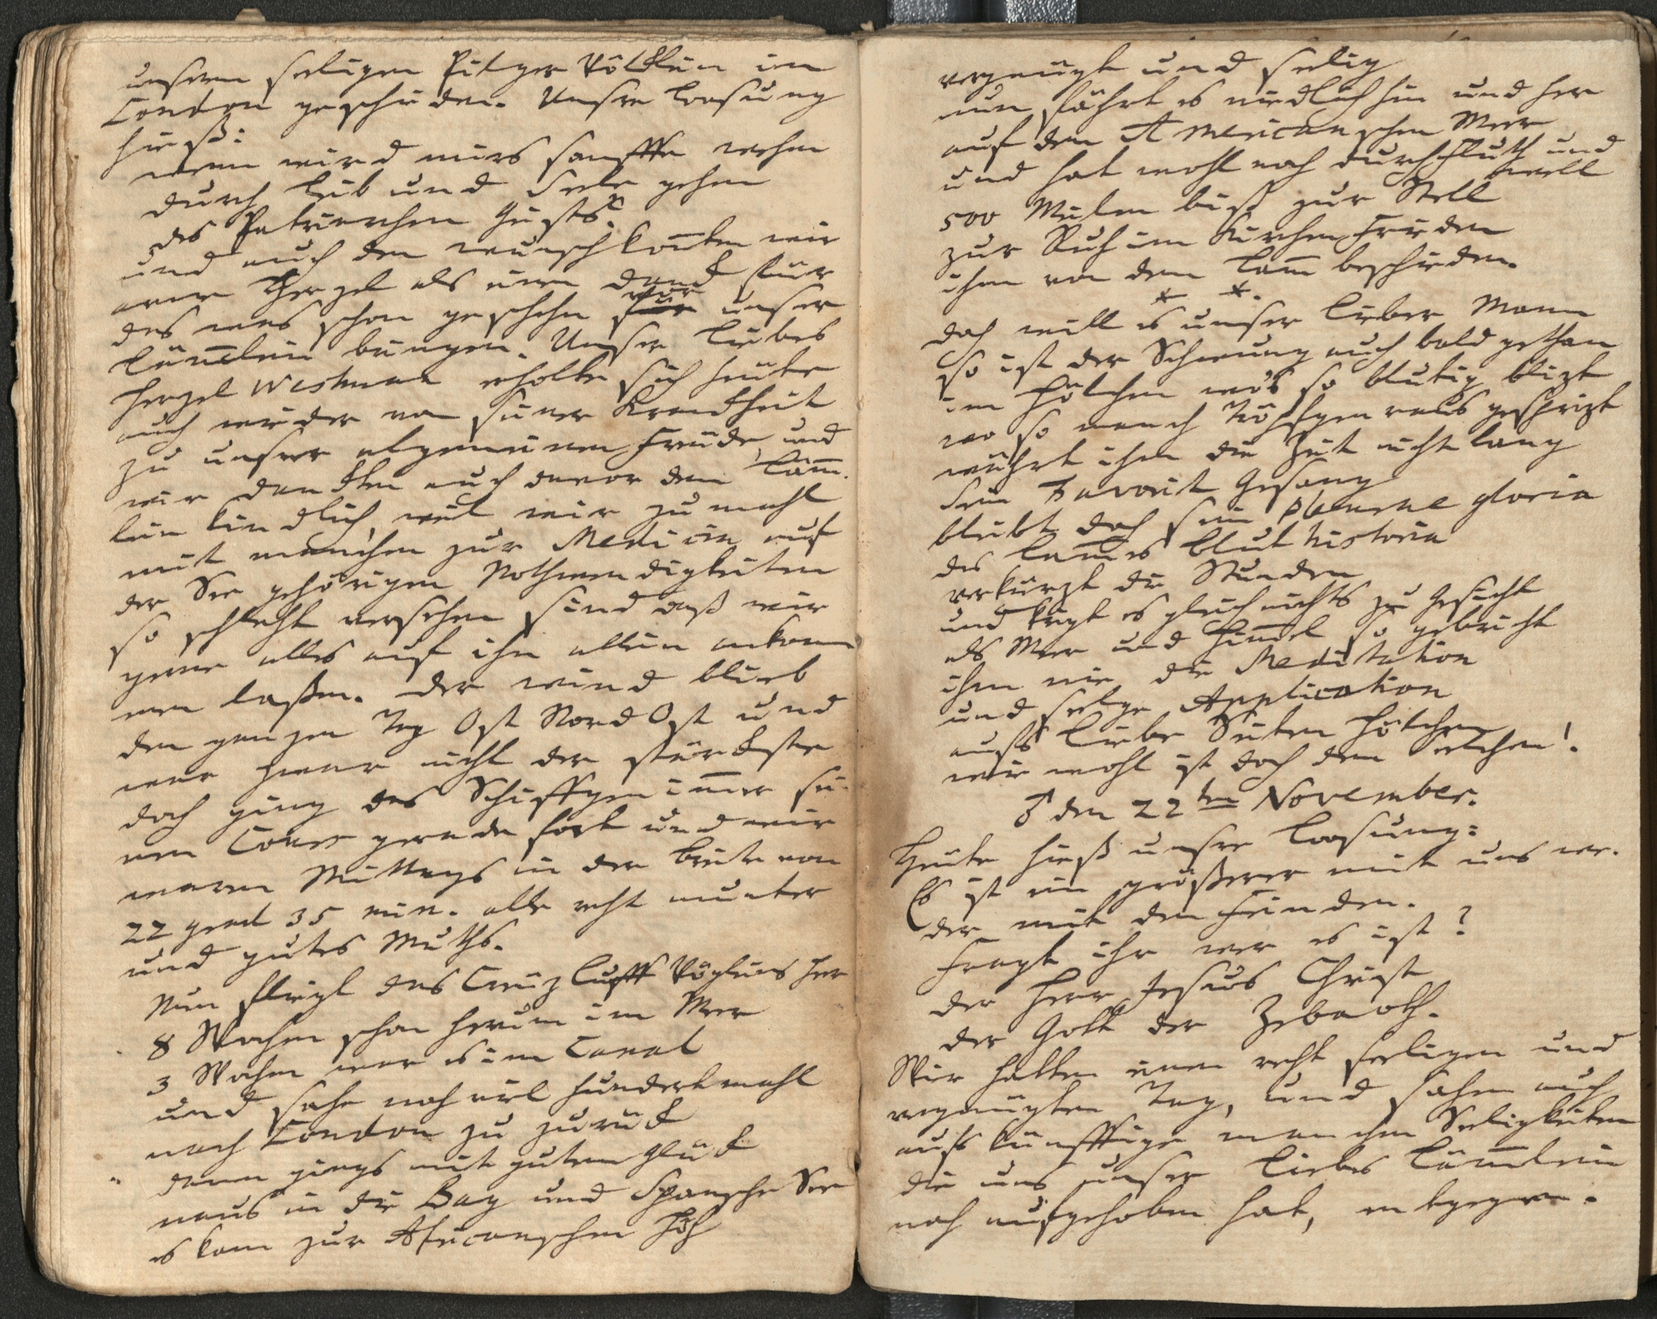 unserm seeligen Pilger Völcklein in
London geschieden. Unsre Loosung
hieß:
wenn wird mirs sanffte wehen
durch Leib und Seele gehen
des Patriarchen Geists
und auch den wunsch konten wir
arme Herzel als einen danck für
das was schon geschehn vor unser
Lämlein bringen. Unser Liebes
Herzel Westman erholte sich heute
auch wieder von seiner Kranckheit
zu unsrer algemeinen Freude, und
wir danckten auch davor dem Läm-
lein kindlich, weil wir zumahl
mit manchen zur Medicin auf
der See gehörigen Nothwendigkeiten
so schlecht versehen sind daß wir
gerne alles auf ihn allein ankom
men laßen. Der wind blieb
den ganzen Tag Ost Nord Ost und
war zwar nicht der stärckste
doch ging das Schiffgen immer sei-
nen Cours gerade fort und wir
waren Mittags in der breite von
22 grad 35 min. alle recht munter
und gutes Muths.
Nun fliegt das Creuz Lufft Vögleins Heer
8 Wochen schon herum im Meer
3 Wochen war es im Canal
und sahe noch viel hundertmahl
nach London zu zurück
dann giengs mit gutem Glück
naus in die Bay und Spansche See
es kam zur Africanschen Höh
vergnügt und selig
nun fährt es niedlich hin und her
auf dem Americanschen Meer
und hat wohl noch durch Fluth und
well
500 Meilen biß zur Stell
zur Ruh im Kirchen Frieden
ihm von dem Lamm beschieden.
* *.
doch will es unser lieber Mann
so ist der Schwung auch bald gethan
im Hölchen wo's so blutig blizt
wo so manch Tröpfgen raus gesprizt
währt ihm die Zeit nicht lang
Sein Favorit Gesang
bleibt doch sein pleurae gloria
des Lammes blut historia
verkürzt die Stunden
und kriegt es gleich nichts zu Gesicht
als Meer und Himmel so gebricht
ihm nie die Meditation
und selge Application
aufs liebe Seiten Hölchen
wie wohl ist doch dem Seelchen!
♂ den 22ten November.
Heute hieß unsre Loosung:
Es ist ein größerer mit uns we-
der mit den Feinden.
Fragt ihr wer es ist?
der Herr Jesus Christ
der Gott der Zebaoth.
Wir hatten einen recht seeligen und
vergnügten Tag, und sahen auch
aufs künfftige manchen Seeligkeiten
die uns unser liebes Lämlein
noch aufgehoben hat, entgegen.